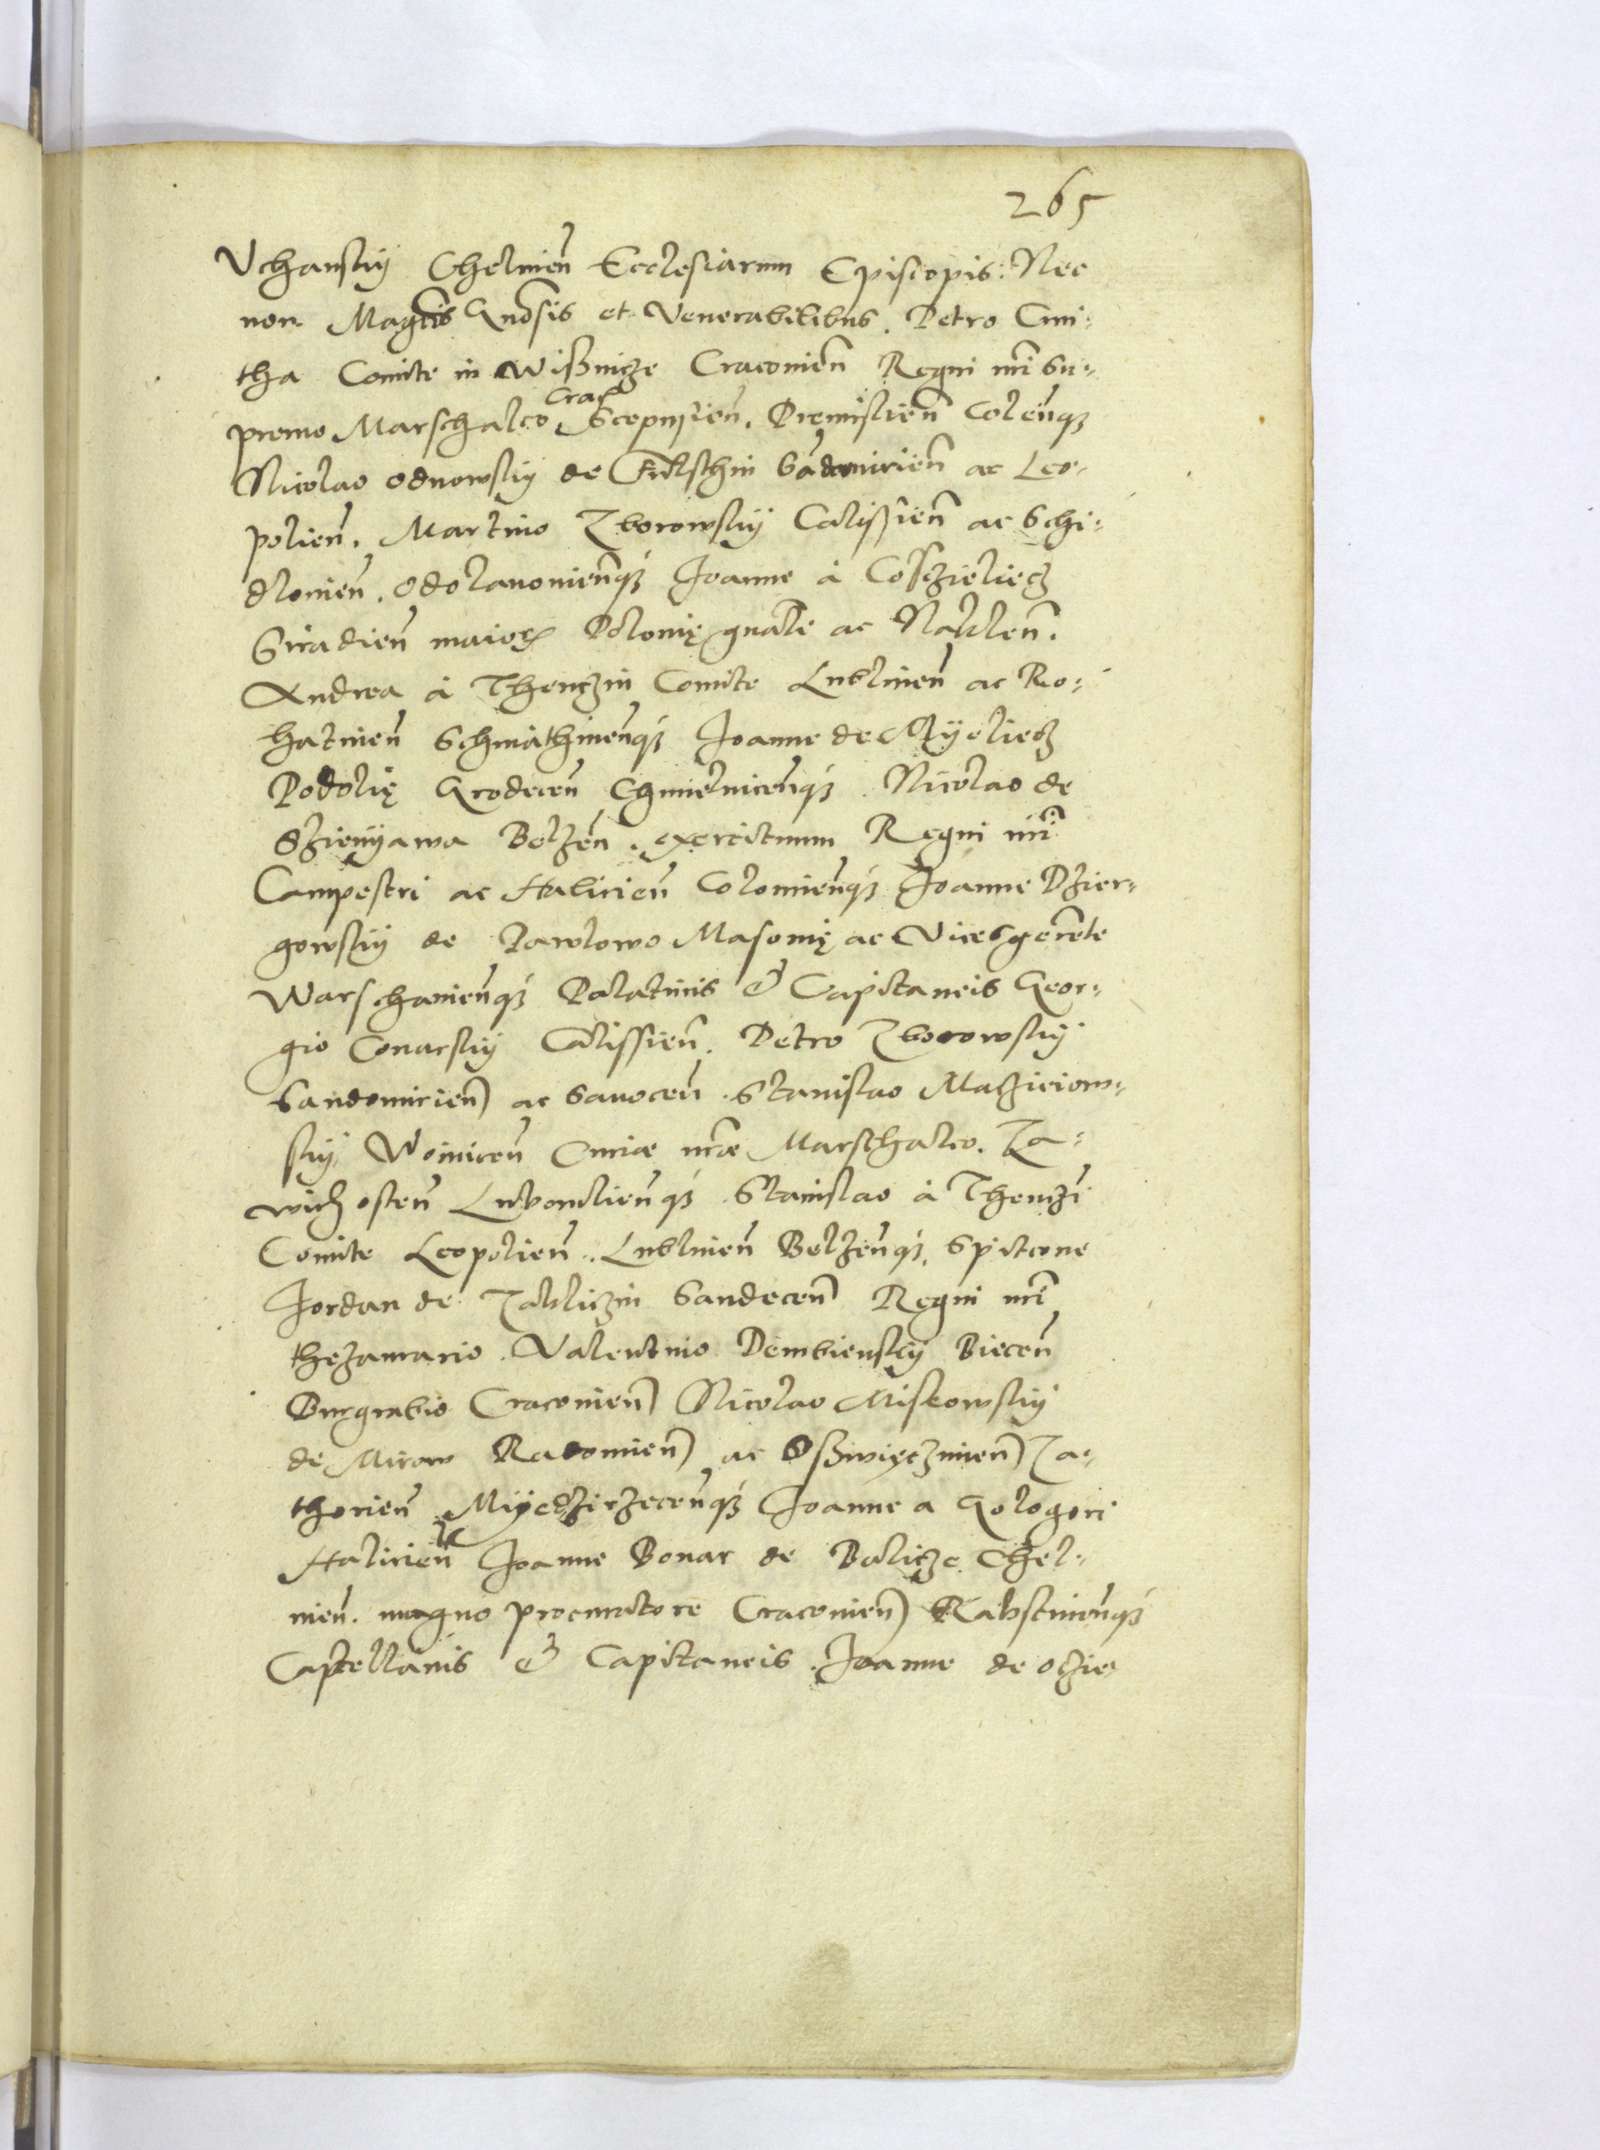 265
Vchanskÿ Chelmen̄ Ecclesiarum Episcopis: Nec
non Magcīs Gnōsis et Venerabilibus. Petro Cmi:
tha Comite in Wißnicze Cracovien̄ Regni nrī Su:
premo Marschalco Crac̄ Scepusien̄. Premislien̄ Colen̄q₃
Nicolao Odnowskÿ de Fulschin Sādomirien̄ ac Leo:
polien̄. Martino Zborowskÿ Calissien̄ ac Schi:
dlovien̄. Odolanovien̄q₃ Joanne à Cosczieliecz
Siradien̄ maior Polonię gnāle ac Naklen̄.
Andrea à Thenczin Comite Lublinen̄ ac Ro:
hatinen̄ Schniathinen̄q₃ Joanne de Mÿeliecz
Podolię Grodecen̄ Chmielnicen̄q₃. Nicolao de
Szienÿawa Belzen̄. exercituum Regni nrī
Campestri ac Halicien̄ Colomien̄q₃ Joanne Dzier:
gowskÿ de Pawlowo Masovię ac Vicesgerēte
Warschavien̄q₃ Palatinis & Capitaneis Geor:
gio Conarskÿ Calissien̄. Petro Zborowskÿ
Sandomirien̄ ac Sanocen̄. Stanislao Maczieiow:
skÿ Woinicen̄ Curiæ nræ Marschalco. Za:
wichosten̄ Lubovlien̄q₃. Stanislao à Thenczī
Comite Leopolien̄. Lublinen̄ Belzen̄q₃. Spitcone
Jordan de Zakliczin Sandecen̄ Regni nrī
thezaurario. Valentino Dembienskÿ Biecen̄
Burgrabio Cracovien̄ Nicolao Miskowskÿ
de Mirow Radomien̄ ac Oßwięczimen̄ Za:
thorien̄ Mÿedzirzecen̄q₃ Joanne a Gologori
Halicien̄ Joanne Bonar de Balicze Chel:
mien̄. magno procuratore Cracovien̄ Rabstinen̄q₃
Castellanis & Capitaneis. Joanne de Oczie